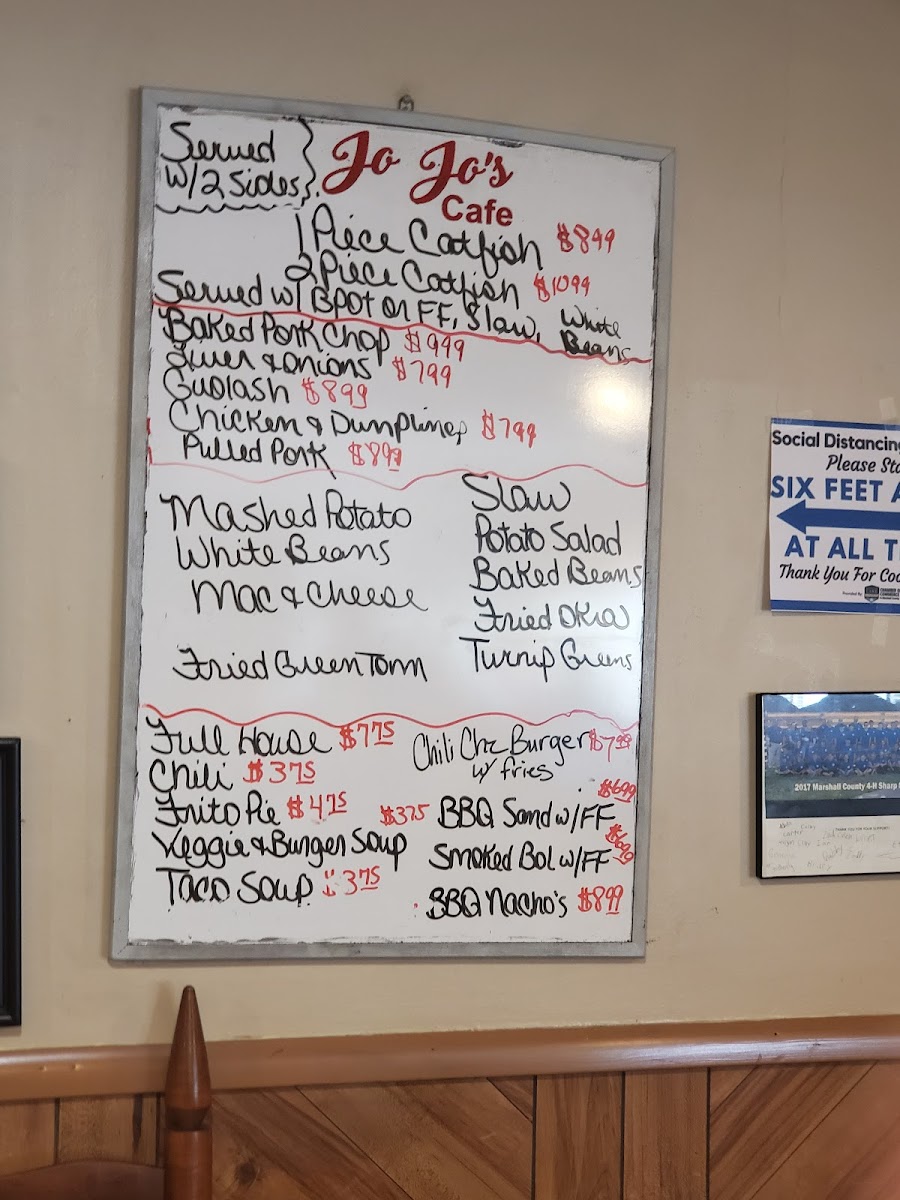 Served
W/2 Sides
Jo Jo's
Cafe
1 Piece Catfish $8 99
2 Piece Catfish $10 99
Served w/ BPOT or FF, Slaw, White
Beans
Baked Pork Chop $9 99
Liver & Onions $7 99
Guolash $8 99
Chicken & Dumplings $7 99
Pulled Pork $8 99
Mashed Potato
White Beans
Mac & Cheese
Fried Green Tom
Slaw
Potato Salad
Baked Beans
Fried Okra
Turnip Greens
Full House $7 75
Chili $3 75
Frito Pie $4 75
$3 75
Veggie & Burger Soup
Taco Soup $3 75
Chili Chz Burger $7 99
w/ fries
$6 99
BBQ Sand w/FF
$6 99
Smoked Bol w/FF
BBQ Nacho's $8 99
Social Distancing
Please Sta
SIX FEET A
AT ALL T
Thank You For Coo
2017 Marshall County 4-H Sharp